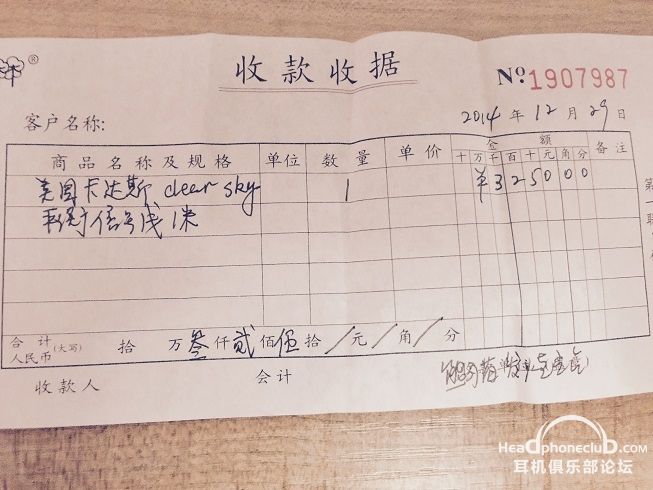 ®
收款收据
№ 1907987
2014 年 12 月 29 日
客户名称:
商品名称及规格 单位 数量 单价 金额 备注
十 万 千 百 十 元 角 分
美国卡达斯 clear sky 1 ¥325000
平衡信号线 1米
合计 人民币 (大写) 拾 万 叁 仟 贰 佰 伍 拾 / 元 / 角 / 分
收款人 会计
第一联
Headphoneclub.com
耳机俱乐部论坛